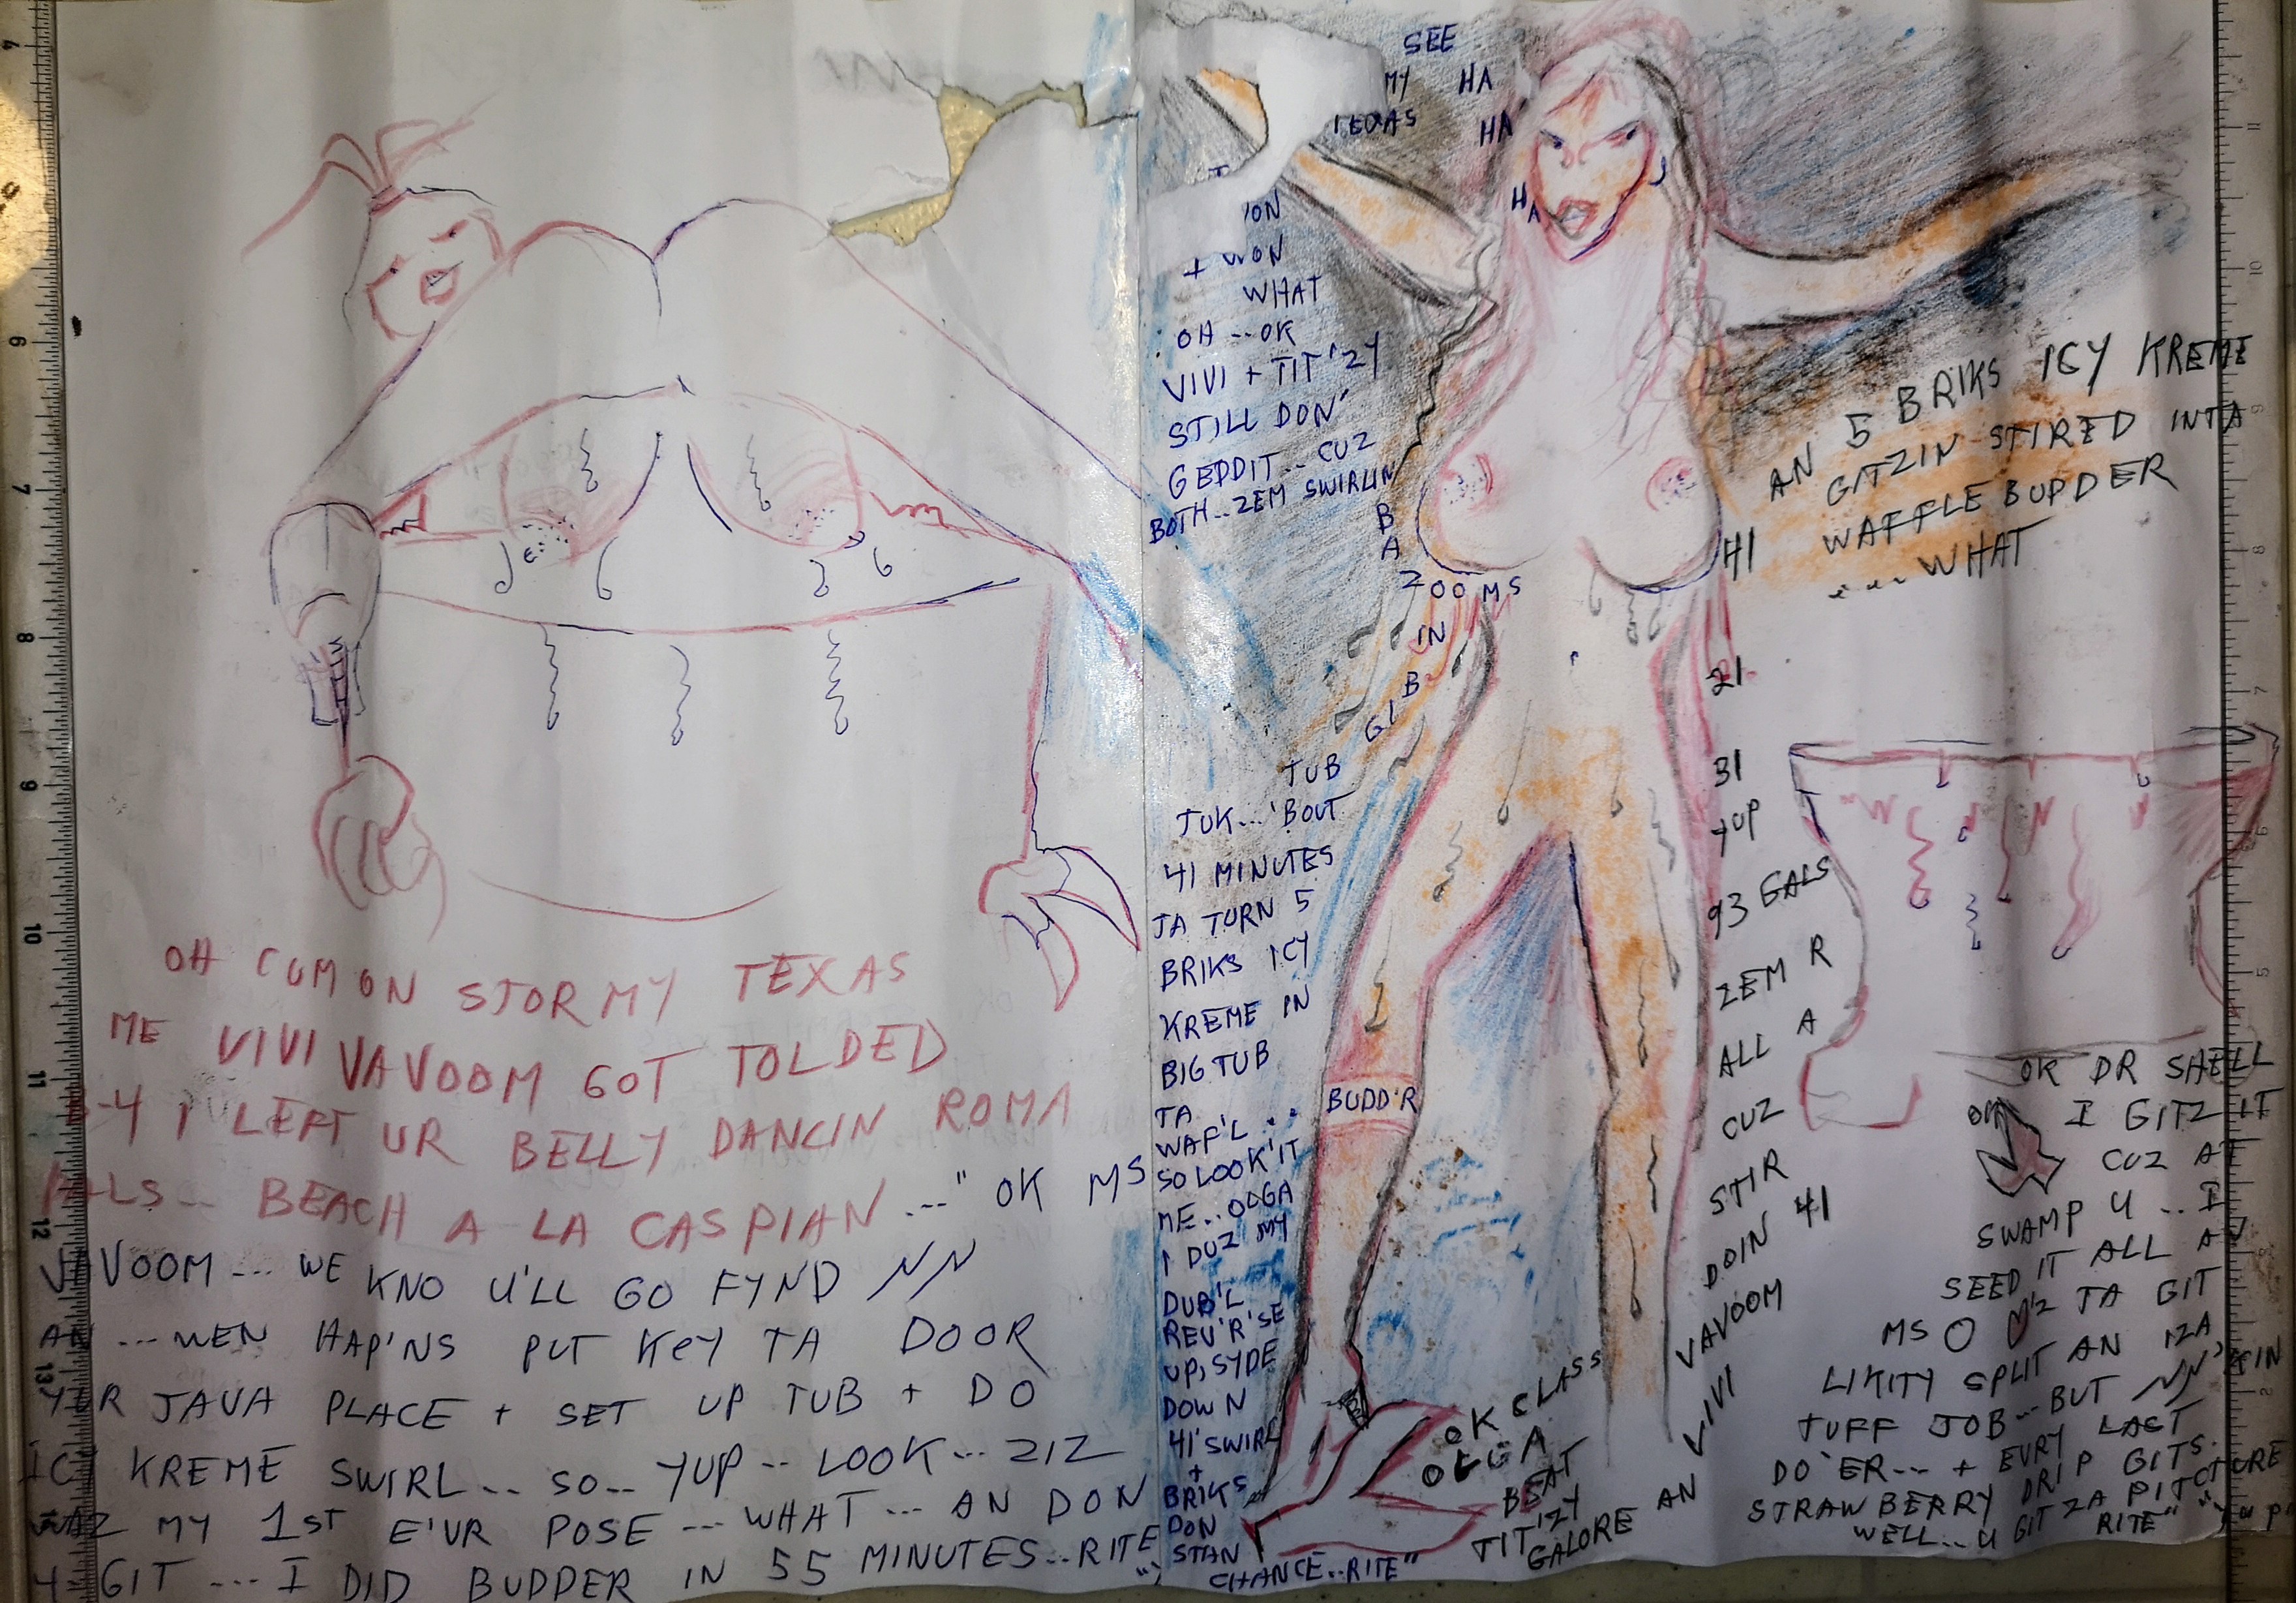 OH CUM ON STORMY TEXAS
ME VIVI VAVOOM GOT TOLDED
4 I LEFT UR BELLY DANCIN ROMA
PALS... BEACH A LA CASPIAN..." OK MS
VAVOOM... WE KNO U'LL GO FYND NN
AN... WEN HAP'NS PUT KEY TA DOOR
YER JAVA PLACE + SET UP TUB + DO
ICY KREME SWIRL.. SO.. YUP.. LOOK... ZIZ
WAZ MY 1ST E'VR POSE... WHAT... AN DON
GIT... I DID BUDDER IN 55 MINUTES..RITE"
SEE
MY
TEXAS
HA
HA
HA
+ WON
WHAT
OH...OK
VIVI + TIT'ZY
STILL DON'
GEDDIT.. CUZ
BOTH..ZEM SWIRLIN
BA
ZOOMS
IN
BIG
TUB
TUK...'BOUT
41 MINUTES
TA TURN 5
BRIKS ICY
KREME IN
BIG TUB
TA
WAF'L..
BUDD'R
SO LOOK'IT
ME..OLGA
I DUZ MY
DUB'L
REV'R'SE
UP,SYDE
DOWN
41'SWIRL
+
BRIKS
DON
STAN
CHANCE..RITE"
AN 5 BRIKS ICY KREME
GITZIN STIRED INTA
WAFFLE BUDDER
....WHAT
41
21
31
YUP
93 GALS
ZEM R
ALL A
CUZ
STIR
DOIN 41
VAVOOM
VIVI
AN
GALORE
TIT'IZY
BEAT
OLGA
OK CLASS
OK DR SHELL
I GITZ IT
CUZ AT
SWAMP U.. I
SEED IT ALL AN
MS O M'Z TA GIT
LIKITY SPLIT AN IZA
TUFF JOB...BUT NN'
DO'ER... + EVRY LAST
STRAWBERRY DRIP GITS.
WELL...U GIT ZA PITCTURE
RITE" "YUP